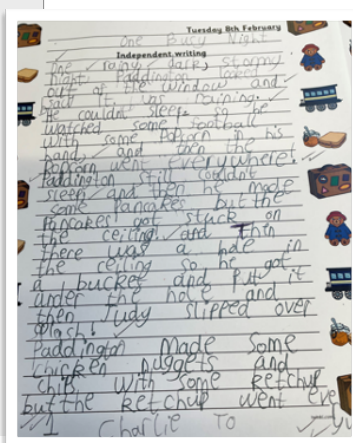 Tuesday 8th February
One Busy Night
Independent writing
One rainy, dark, stormy
night, Paddington looked
out of the window and
saw it was raining.
He couldn't sleep so he
watched some football
with some Popcorn in his
hand, and then the
Popcorn went everywhere!
Paddington still couldn't
sleep and then he made
some Pancakes but the
Pancakes got stuck on
the ceiling! and Then
there was a hole in
the ceiling so he got
a bucket and Put it
under the hole and
then Judy slipped over
Paddington made some
chicken nuggets and
chips with some ketchup
but the ketchup went eve
Charlie To